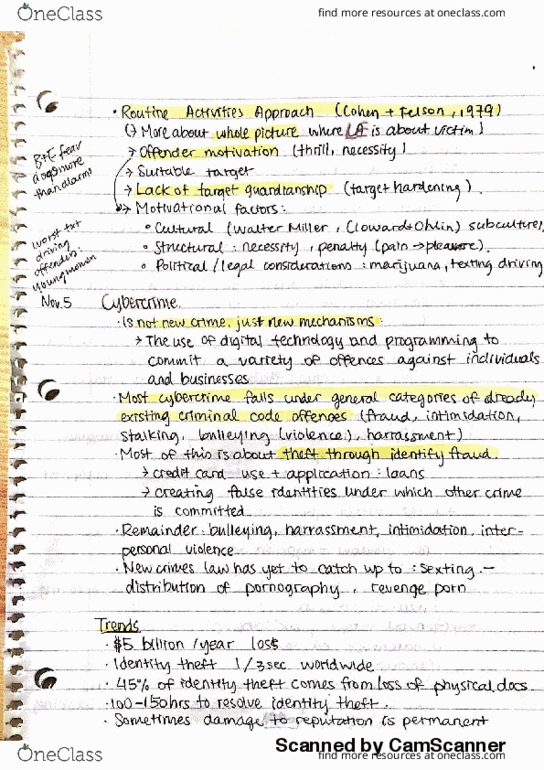 OneClass
find more resources at oneclass.com
· Routine Activities Approach (Cohen + Felson, 1979)
↳ More about whole picture where LA is about victim!
→ Offender motivation (thrill, necessity)
→ Suitable target
→ Lack of target guardianship (target hardening).
→ Motivational factors:
B+E fear
dogs more
than alarms
° Cultural (Walter Miller, Cloward + Ohlin) subculture,
° Structural: necessity, penalty (pain → pleasure).
° Political/legal considerations: marijuana, texting driving
worst txt
driving
offenders:
young women
Nov. 5 Cybercrime
· Is not new crime, just new mechanisms:
→ The use of digital technology and programming to
commit a variety of offences against individuals
and businesses
· Most cybercrime falls under general categories of already
existing criminal code offences (fraud, intimidation,
stalking, bulleying (violence), harrassment)
· Most of this is about theft through identify fraud
→ credit card use + application: loans
→ creating false identities under which other crime
is committed.
· Remainder: bulleying, harrassment, intimidation, inter-
personal violence
· New crimes law has yet to catch up to: sexting -
distribution of pornography, revenge porn
Trends
· $5 billion/year loss
· Identity theft 1/3sec worldwide
· 45% of identity theft comes from loss of physical docs
· 100-150hrs to resolve identity theft.
· Sometimes damage to reputation is permanent
Scanned by CamScanner
OneClass
find more resources at oneclass.com